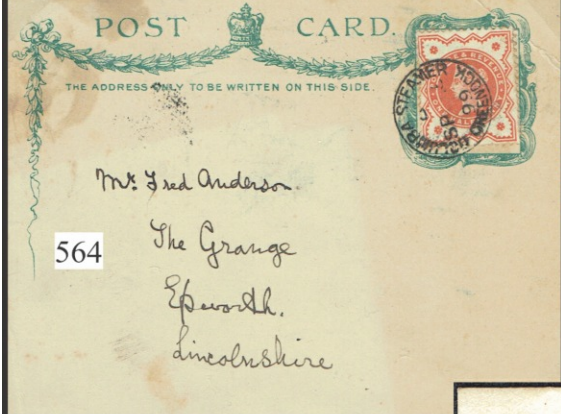 POST CARD.
THE ADDRESS ONLY TO BE WRITTEN ON THIS SIDE.
STEAMER
GREENOCK
99
Mr. Fred Anderson.
564
The Grange
Epworth.
Lincolnshire